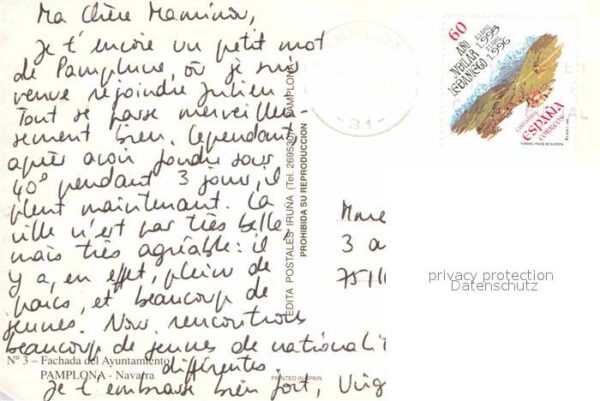 Ma Chère Maminou,
Je t'encoie un petit mot
de Pamplune, où je suis
venue rejoindre Julien.
Tout se passe merveilleu-
sement bien. Cependant
après avoir fondu sous
40° pendant 3 jours, il
pleut maintenant. La
ville n'est pas très belle,
mais très agréable : il
y a, en effet, plein de
parcs, et beaucoup de
jeunes. Nous rencontrons
beaucoup de jeunes de nationalit
différentes
Je t'embrasse bien fort, Virg
Nº 3 – Fachada del Ayuntamiento
PAMPLONA - Navarra
EDITA POSTALES IRUÑA (Tel. 269530) PAMPLONA
PROHIBIDA SU REPRODUCCION
PRINTED IN SPAIN
PAMPLONA
-31-
60
AÑO 1995
JUBILAR 1996
LEBANIEGO
ESPAÑA
CORREOS
TURISMO. PICOS DE EUROPA
Mme
3 a
7511
privacy protection
Datenschutz